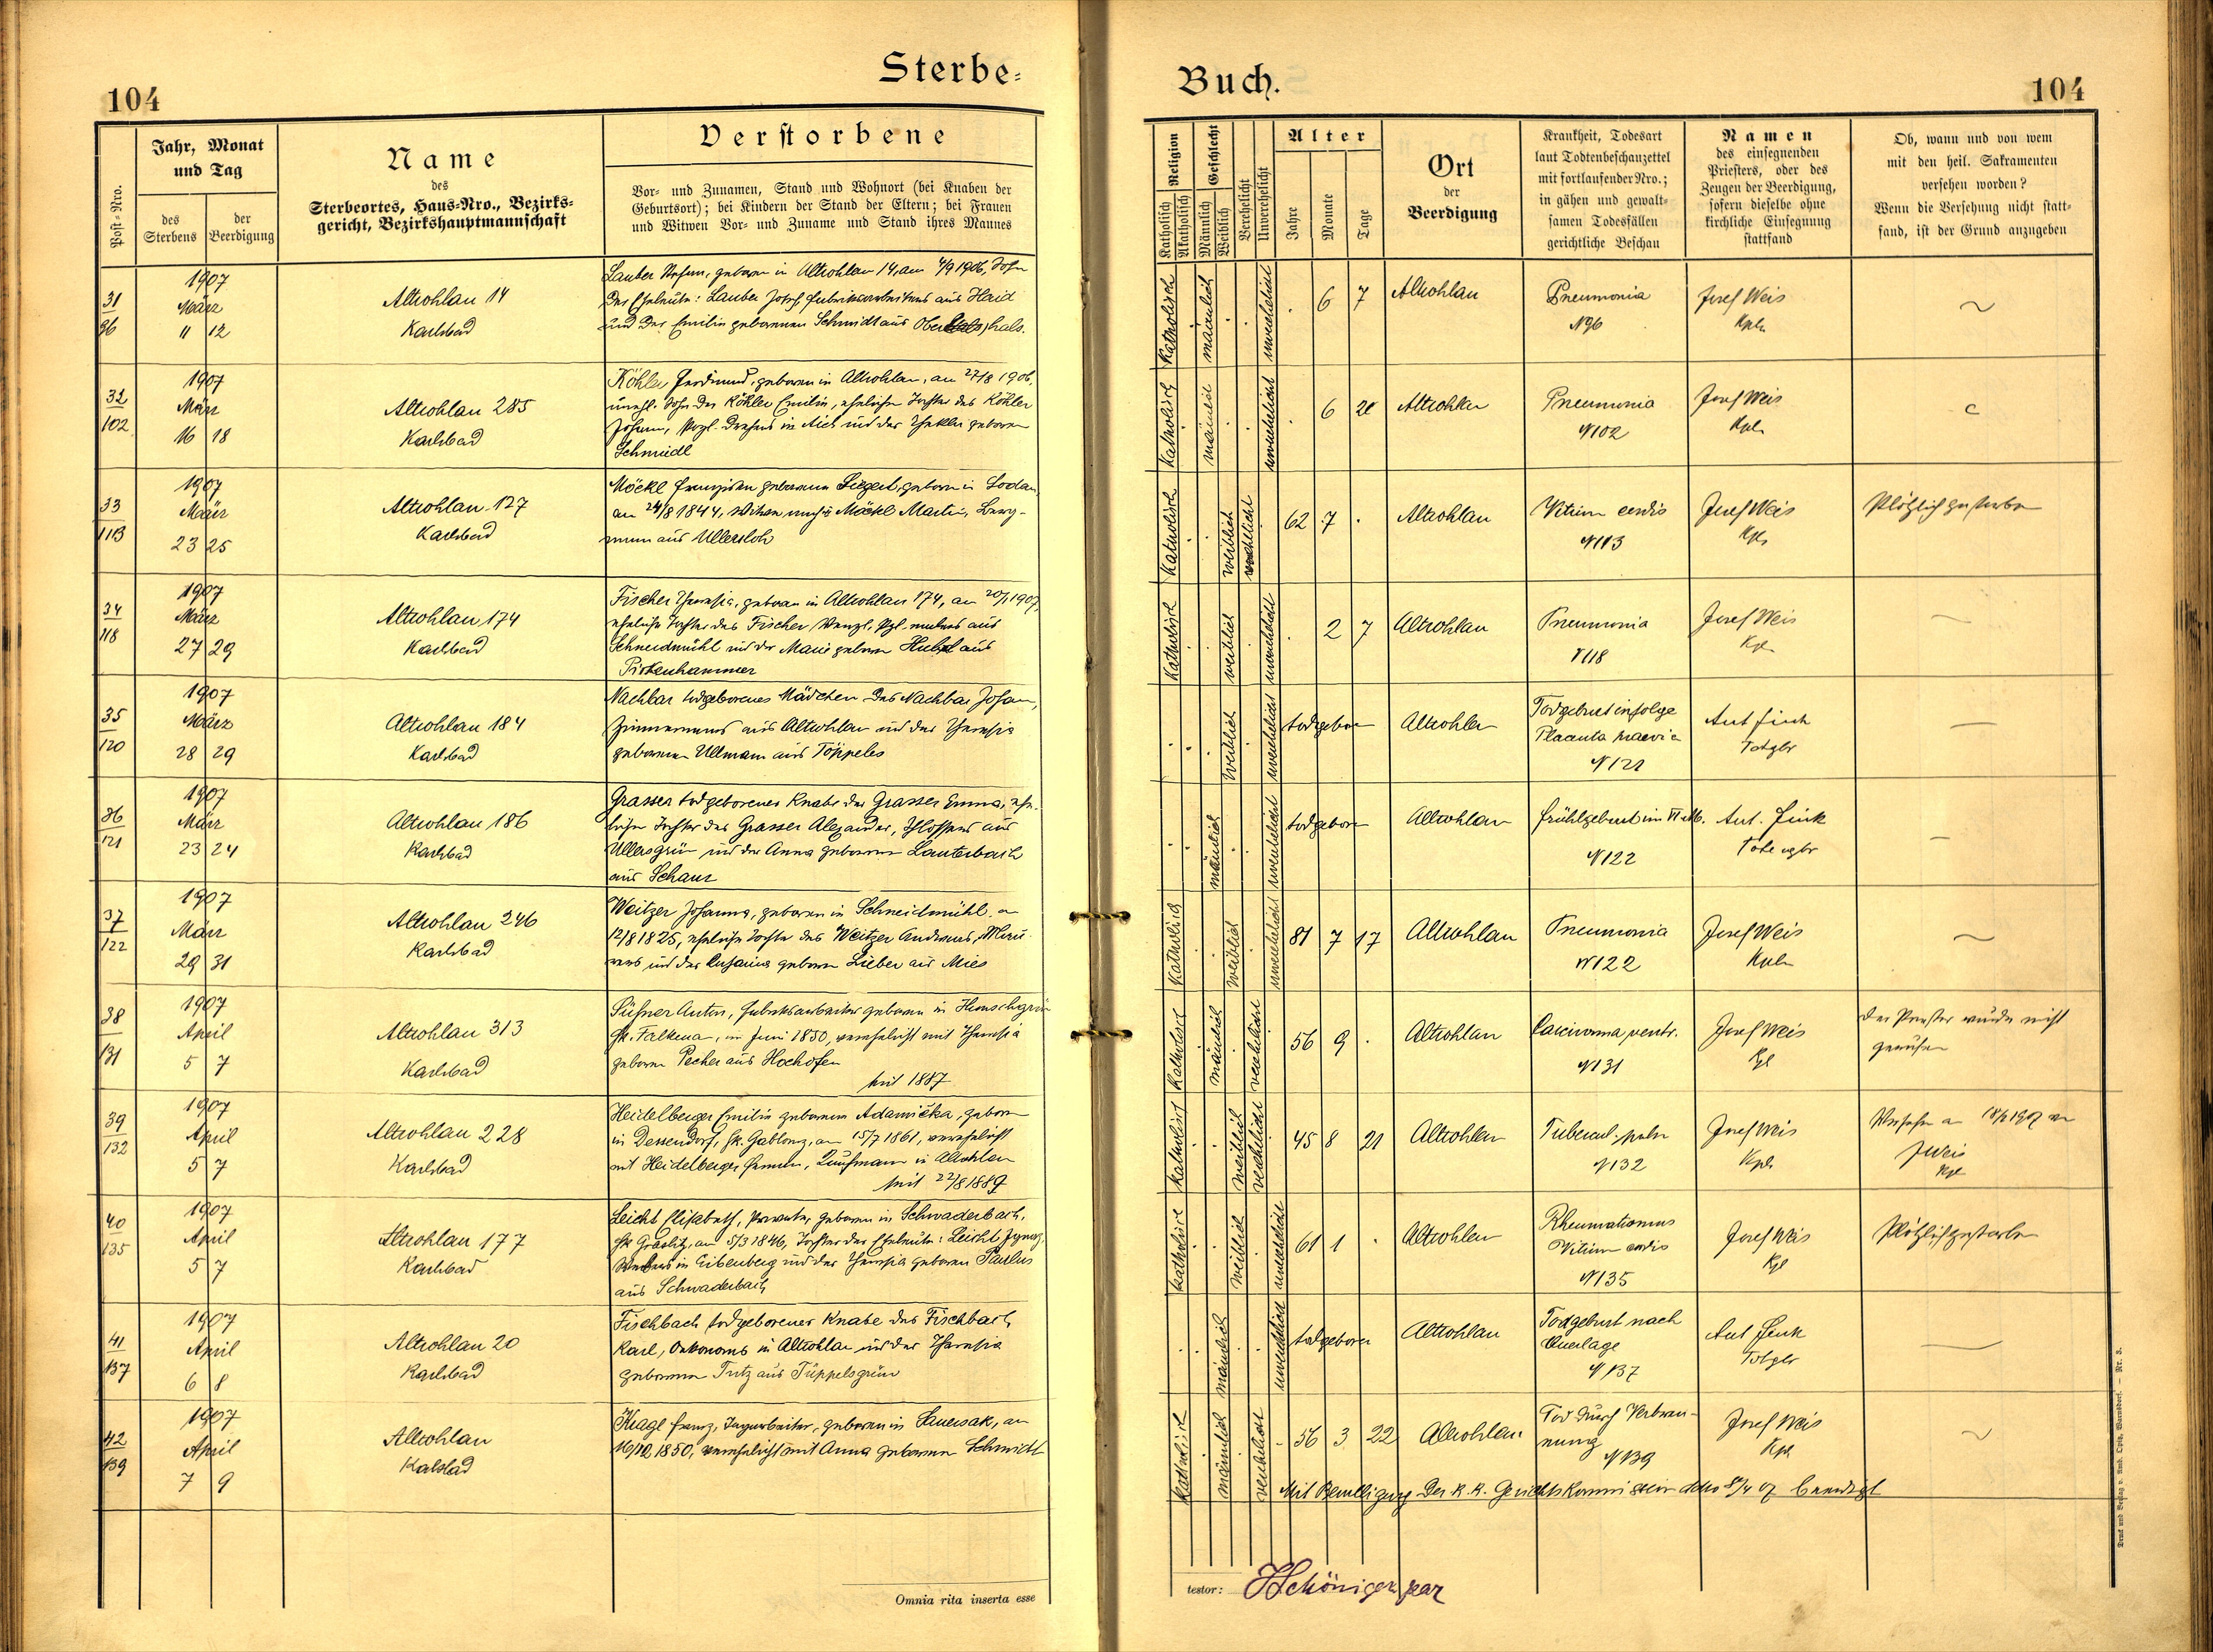 Sterbe-
104
Jahr, Monat
und Tag
Post-Nro.
des
Sterbens
der
Beerdigung
Name
des
Sterbeortes, Haus-Nro., Bezirks-
gericht, Bezirkshauptmannschaft
Verstorbene
Vor- und Zunamen, Stand und Wohnort (bei Knaben der
Geburtsort); bei Kindern der Stand der Eltern; bei Frauen
und Witwen Vor- und Zuname und Stand ihres Mannes
31
96
1907
März
11 12
Altrohlau 14
Karlsbad
Lauber, geboren in Altrohlau 14, am 4/9 1906, Sohn
der Eheleute: Lauber Josef Fabriksarbeiters aus Haid
und der Emilie geborenen Schmidt aus
32
102
1907
März
16 18
Altrohlau 285
Karlsbad
Köhler Ferdinand, geboren in Altrohlau, am 27/8 1906,
unehl. Sohn der Köhler Emilie, eheliche Tochter des Köhler
Johann, Porzl. Drehers in Aich und der Thekla geboren
Schmiedl
33
113
1907
März
23 25
Altrohlau 127
Karlsbad
Möckl Franziska geborene Siegert, geboren in Sodau,
am 24/8 1844, Witwe nach Möckl Martin, Berg-
mann aus Ullersloh
34
118
1907
März
27 29
Altrohlau 174
Karlsbad
Fischer Theresia, geboren in Altrohlau 174, am 20/1 1907,
eheliche Tochter des Fischer Wenzl, Pzl. malers aus
Schneidmühl und der Marie geboren aus
Pirkenhammer
35
120
1907
März
28 29
Altrohlau 184
Karlsbad
Nachbar todgeborenes Mädchen des Nachbar Johann,
Zimmermanns aus Altrohlau und der Theresia
geborenen Ullmann aus Töppeles
36
121
1907
März
23 24
Altrohlau 186
Karlsbad
Grasser todgeborener Knabe der Grasser Emma, ehe-
lichen Tochter des Grasser Alexander, Schlossers aus
Ullersgrün und der Anna geborenen Lauterbach
aus Schanz
37
122
1907
März
29 31
Altrohlau 246
Karlsbad
Weitzer Johanna, geboren in Schneidmühl, am
12/8 1825, eheliche Tochter des Weitzer Andreas, Mau-
rers und der Susanna geboren Lieber aus Mies
38
131
1907
April
5 7
Altrohlau 313
Karlsbad
Püchner Anton, Fabriksarbeiter geboren in
Falkenau, im Juni 1850, verehelicht mit Theresia
geboren Pecher aus Hochofen
seit 1887
39
132
1907
April
5 7
Altrohlau 228
Karlsbad
Heidelberger Emilie geborene Adamička, geboren
in Dessendorf, Bk. Gablonz, am 15/7 1861, verehelicht
mit Heidelberger, Kaufmann in Altrohlau
seit 22/8 1889
40
135
1907
April
5 7
Altrohlau 177
Karlsbad
Leicht Elisabeth, Private, geboren in Schwaderbach,
Bk Graslitz, am 5/3 1846, Tochter der Eheleute: Leicht Ignaz,
Webers in Eibenberg und der Theresia geboren Paulus
aus Schwaderbach
41
137
1907
April
6 8
Altrohlau 20
Karlsbad
Fischbach todgeborener Knabe des Fischbach
Karl, Oekonoms in Altrohlau und der Theresia
geborenen Tritz aus Tüppelsgrün
42
139
1907
April
7 9
Altrohlau
Karlsbad
Kragl Franz, Tagarbeiter, geboren in Sauersak, am
verehelicht mit Anna geborenen Schmidt
Omnia rita inserta esse
Buch.
104
Religion
Katholisch
Akatholisch
Geschlecht
Männlich
Weiblich
Verehelicht
Unverehelicht
Alter
Jahre
Monate
Tage
Ort
der
Beerdigung
Krankheit, Todesart
laut Todtenbeschauzettel
mit fortlaufender Nro.;
in gähen und gewalt-
samen Todesfällen
gerichtliche Beschau
Namen
des einsegnenden
Priesters, oder des
Zeugen der Beerdigung,
sofern dieselbe ohne
kirchliche Einsegnung
stattfand
Ob, wann und von wem
mit den heil. Sakramenten
versehen worden?
Wenn die Versehung nicht statt-
fand, ist der Grund anzugeben
katholisch männlich unverehelicht 6 7 Altrohlau Pneumonia Josef Weis
N 96 Kpln
katholisch männlich unverehelicht 6 20 Altrohlau Pneumonia Josef Weis
N 102 Kpln
katholisch weiblich verehelicht 62 7 Altrohlau Vitium cordis Josef Weis Plötzlich gestorben
N 113 Kpl
katholisch weiblich unverehelicht 2 7 Altrohlau Pneumonia Josef Weis
N 118 Kpl
weiblich unverehelicht todgeboren Altrohlau Todgeburt infolge
Placenta praevia Ant Fink
N 121 Totgbr
männlich unverehelicht todgeboren Altrohlau Frühgeburt im VI Mo. Ant. Fink
N 122
katholisch weiblich unverehelicht 81 7 17 Altrohlau Pneumonia Josef Weis
N 122 Kpln
katholisch männlich verehelicht 56 9 Altrohlau Carcinoma ventr. Josef Weis Der Priester wurde nicht
gerufen
N 131 Kpl
katholisch weiblich verehelicht 45 8 21 Altrohlau Tubercul. pulm Josef Weis Versehen am 1907 von
JWeis
Kpl
N 132 Kpl
katholisch weiblich unverehelicht 61 1 Altrohlau Rheumatismus
Vitium cordis Josef Weis Plötzlich gestorben
N 135 Kpl
männlich unverehelicht todgeboren Altrohlau Todgeburt nach
Querlage Ant Fink
N 137 Totgbr
katholisch männlich verehelicht 56 3 22 Altrohlau Tod durch Verbren-
nung Josef Weis
N 139 Kpl
Mit Bewilligung der k. k. Gerichtskommission ddto 8/4 07 beerdigt
testor:
Druck und Verlag v. Amb. Opitz, Warnsdorf. – Nr. 3.